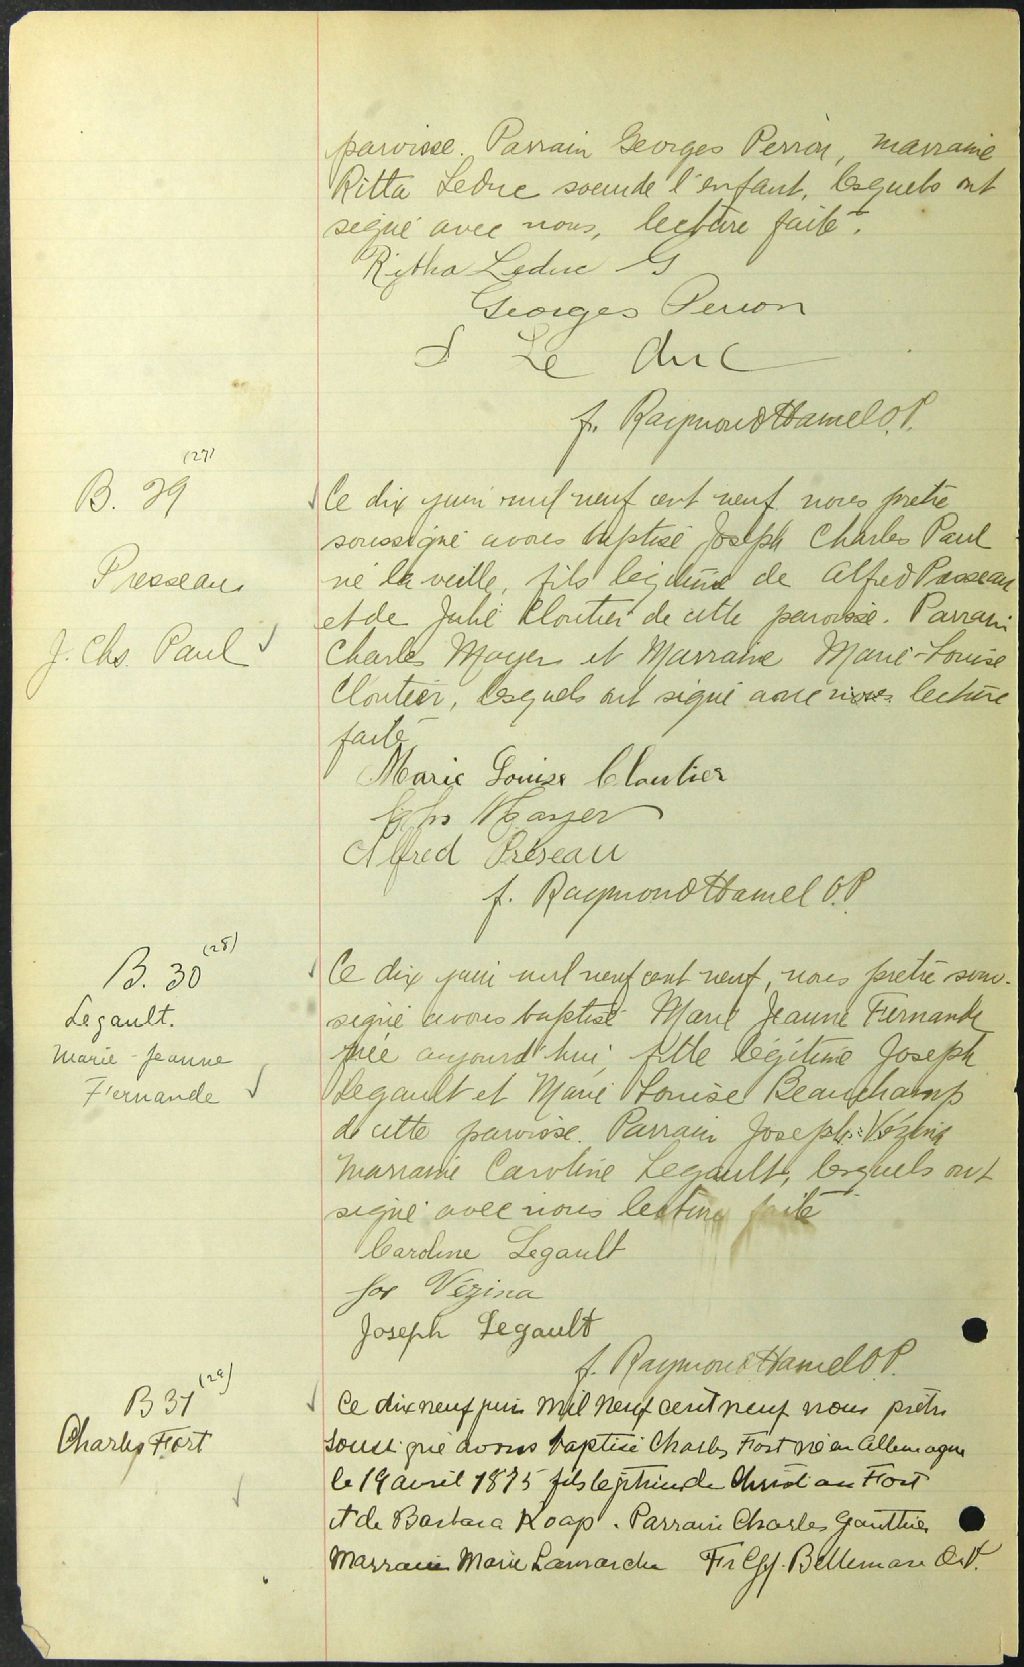 paroisse. Parrain Georges Perron, marraine
Ritta Leduc soeur de l'enfant, lesquels ont
signé avec nous, lecture faite.
Rytha Leduc G
Georges Perron
Le duc
f. Raymond Hamel O.P.
(27)
B. 29
Presseau
J. Chs. Paul
Ce dix juin mil neuf cent neuf nous pretre
soussigné avons baptisé Joseph Charles Paul
né la veille, fils légitime de Alfred Presseau
et de Julie Cloutier de cette paroisse. Parrain
Charles Mayer et Marraine Marie-Louise
Cloutier, lesquels ont signé avec nous lecture
faite
Marie Louise Cloutier
Chs Mayer
Alfred Préseau
f. Raymond Hamel O.P.
(28)
B. 30
Legault.
Marie-Jeanne
Fernande
Ce dix juin mil neuf cent neuf, nous pretre sous-
signé avons baptisé Marie Jeanne Fernande
née aujourd'hui, fille légitime Joseph
Legault et Marie Louise Beauchamp
de cette paroisse. Parrain Joseph Vézina
Marraine Caroline Legault, lesquels ont
signé avec nous lecture faite
Caroline Legault
Jos Vézina
Joseph Legault
f. Raymond Hamel O.P.
(29)
B 31
Charles Fort
Ce dix neuf juin mil neuf cent neuf nous prêtre
soussigné avons baptisé Charles Fort né en Allemagne
le 19 avril 1875 fils légitime de Christian Fort
et de Barbara Koap. Parrain Charles Gauthier
Marraine Marie Lamarche Fr Bellemare O.P.